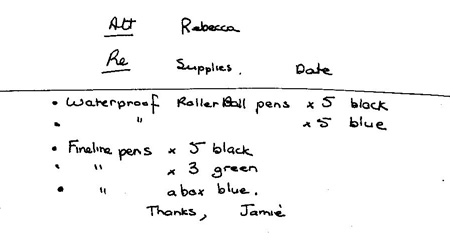 Att Rebecca
Re Supplies. Date
• Waterproof RollerBall pens x 5 black
• " x 5 blue
• Fineline pens x 5 black
• " x 3 green
• " a box blue.
Thanks, Jamie